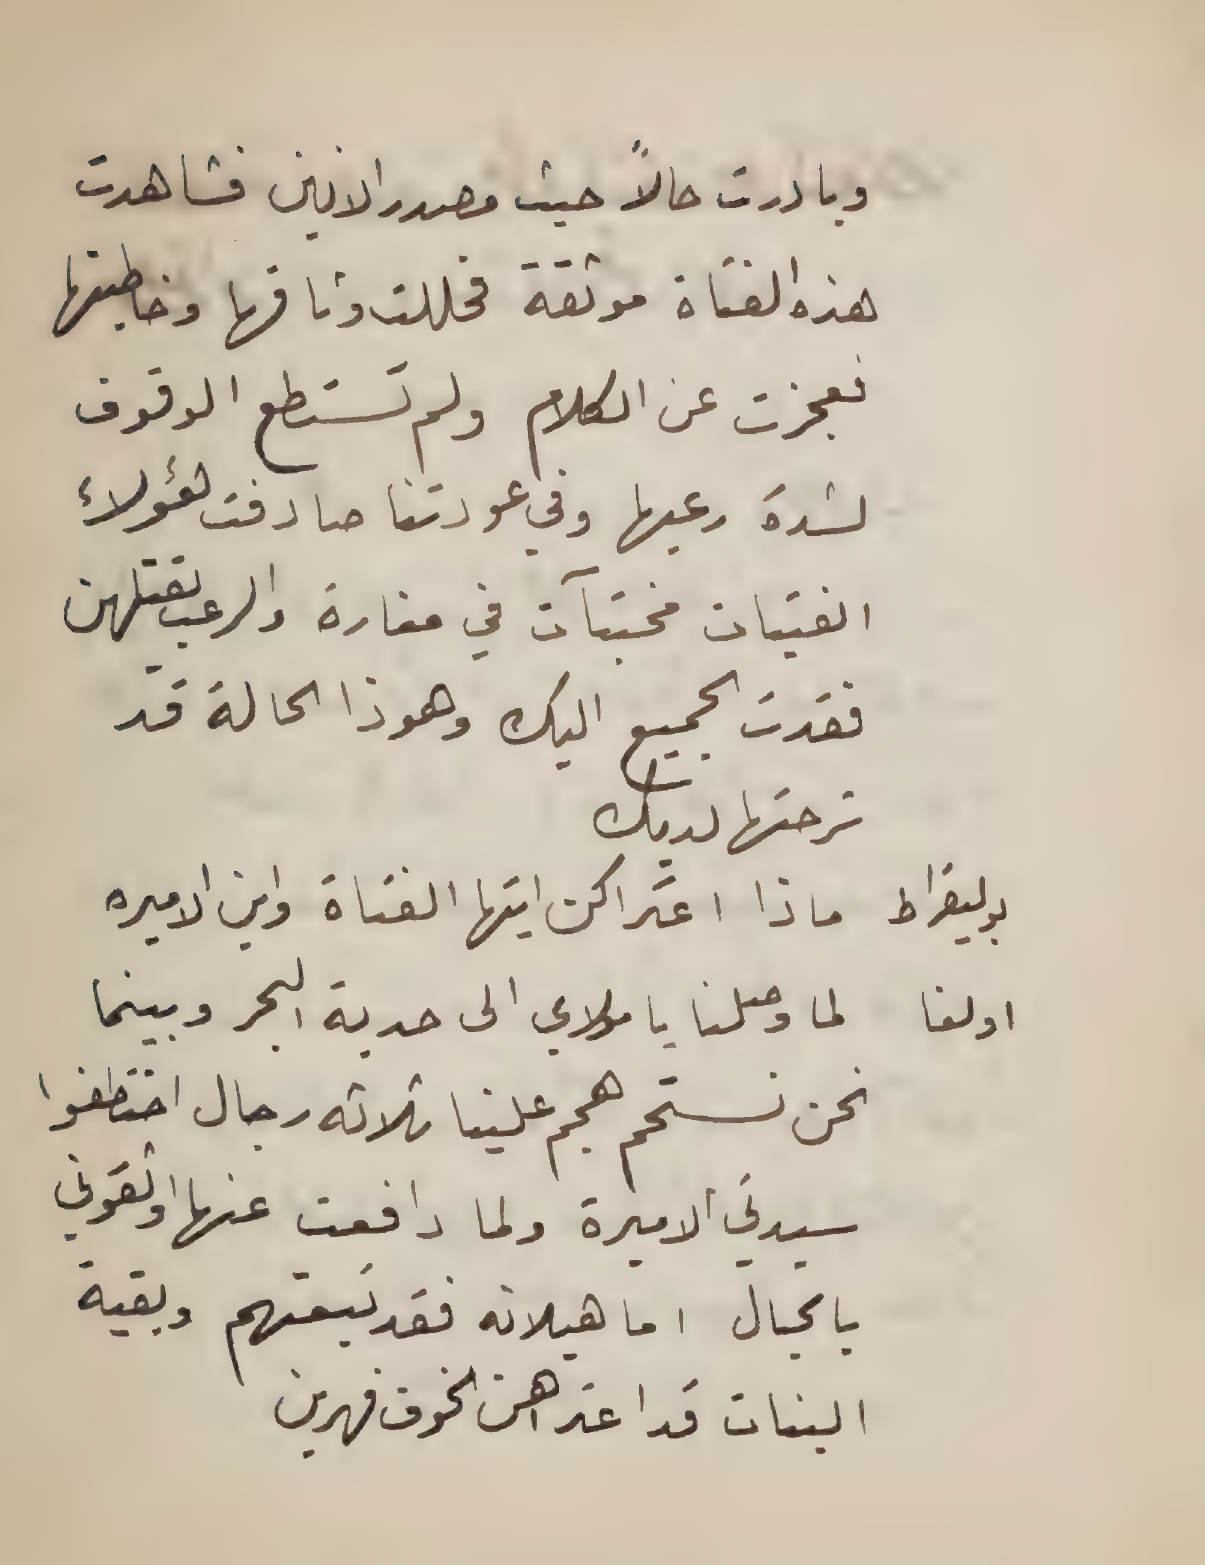 وبادرت حالاً حيث مصدر الانين فشاهدت
هذه الفتاة موثقة فحللت وثاقها وخاطبتها
فعجزت عن الكلام ولم تستطع الوقوف
لشدة رعبها وفي عودتنا صادفت هؤلاء
الفتيات مختبآت في مغارة والرعب يقتلهن
فقدت الجميع اليك وهوذا الحالة قد
شرحتها لديك
بوليقراط ماذا اعتراكن ايتها الفتاة واين الاميره
اولغا لما وصلنا يا مولاي الى حدبة البحر وبينما
نحن نستحم هجم علينا ثلاثه رجال اختطفوا
سيدتي الاميرة ولما دافعت عنها اوثقوني
بالحبال اما هيلانه فقد تبعتهم وبقية
البنات قد اعتراهن الخوف فهربن